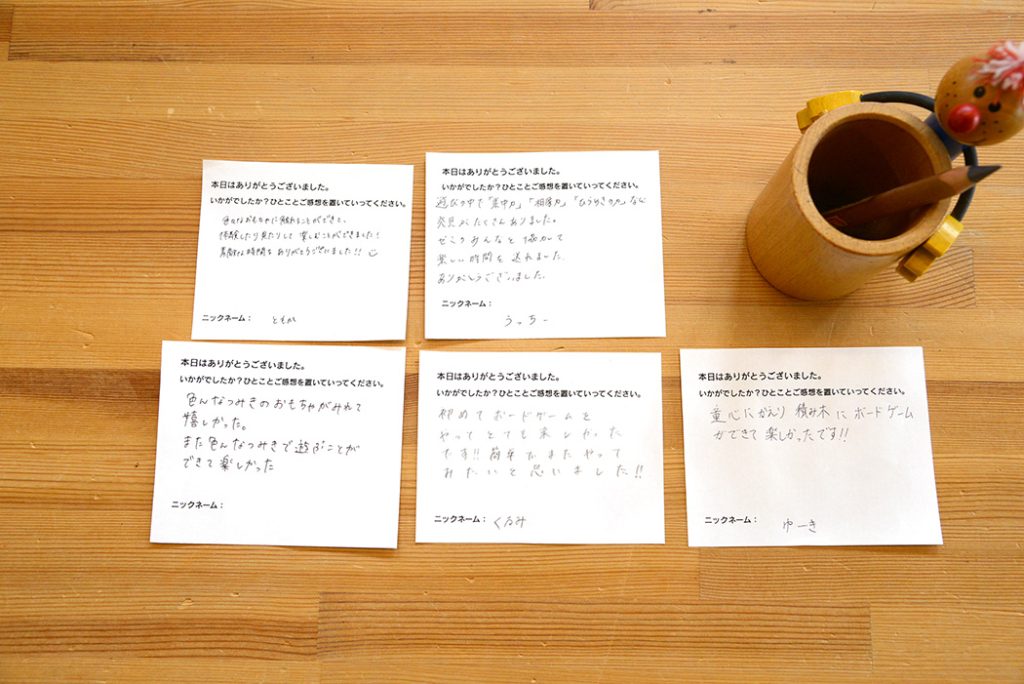 本日はありがとうございました。
いかがでしたか？ひとことご感想を置いていってください。
色々なおもちゃに触れることができて、
体験したり見たりして楽しむことができました！
素敵な時間をありがとうございました!!
ニックネーム：
ともか
本日はありがとうございました。
いかがでしたか？ひとことご感想を置いていってください。
遊びの中で「集中力」「想像力」「ひらめきの力」など
発見がたくさんありました。
ゼミのみんなと
楽しい時間を送れました。
ありがとうございました。
ニックネーム：
うっちー
本日はありがとうございました。
いかがでしたか？ひとことご感想を置いていってください。
色んなつみきのおもちゃがみれて
嬉しかった。
また色んなつみきで遊ぶことが
できて楽しかった
ニックネーム：
本日はありがとうございました。
いかがでしたか？ひとことご感想を置いていってください。
初めてボードゲームを
やってとても楽しかった
です!!またやって
みたいと思いました!!
ニックネーム：
くるみ
本日はありがとうございました。
いかがでしたか？ひとことご感想を置いていってください。
童心にかえり積み木にボードゲーム
ができて楽しかったです!!
ニックネーム：
ゆーき